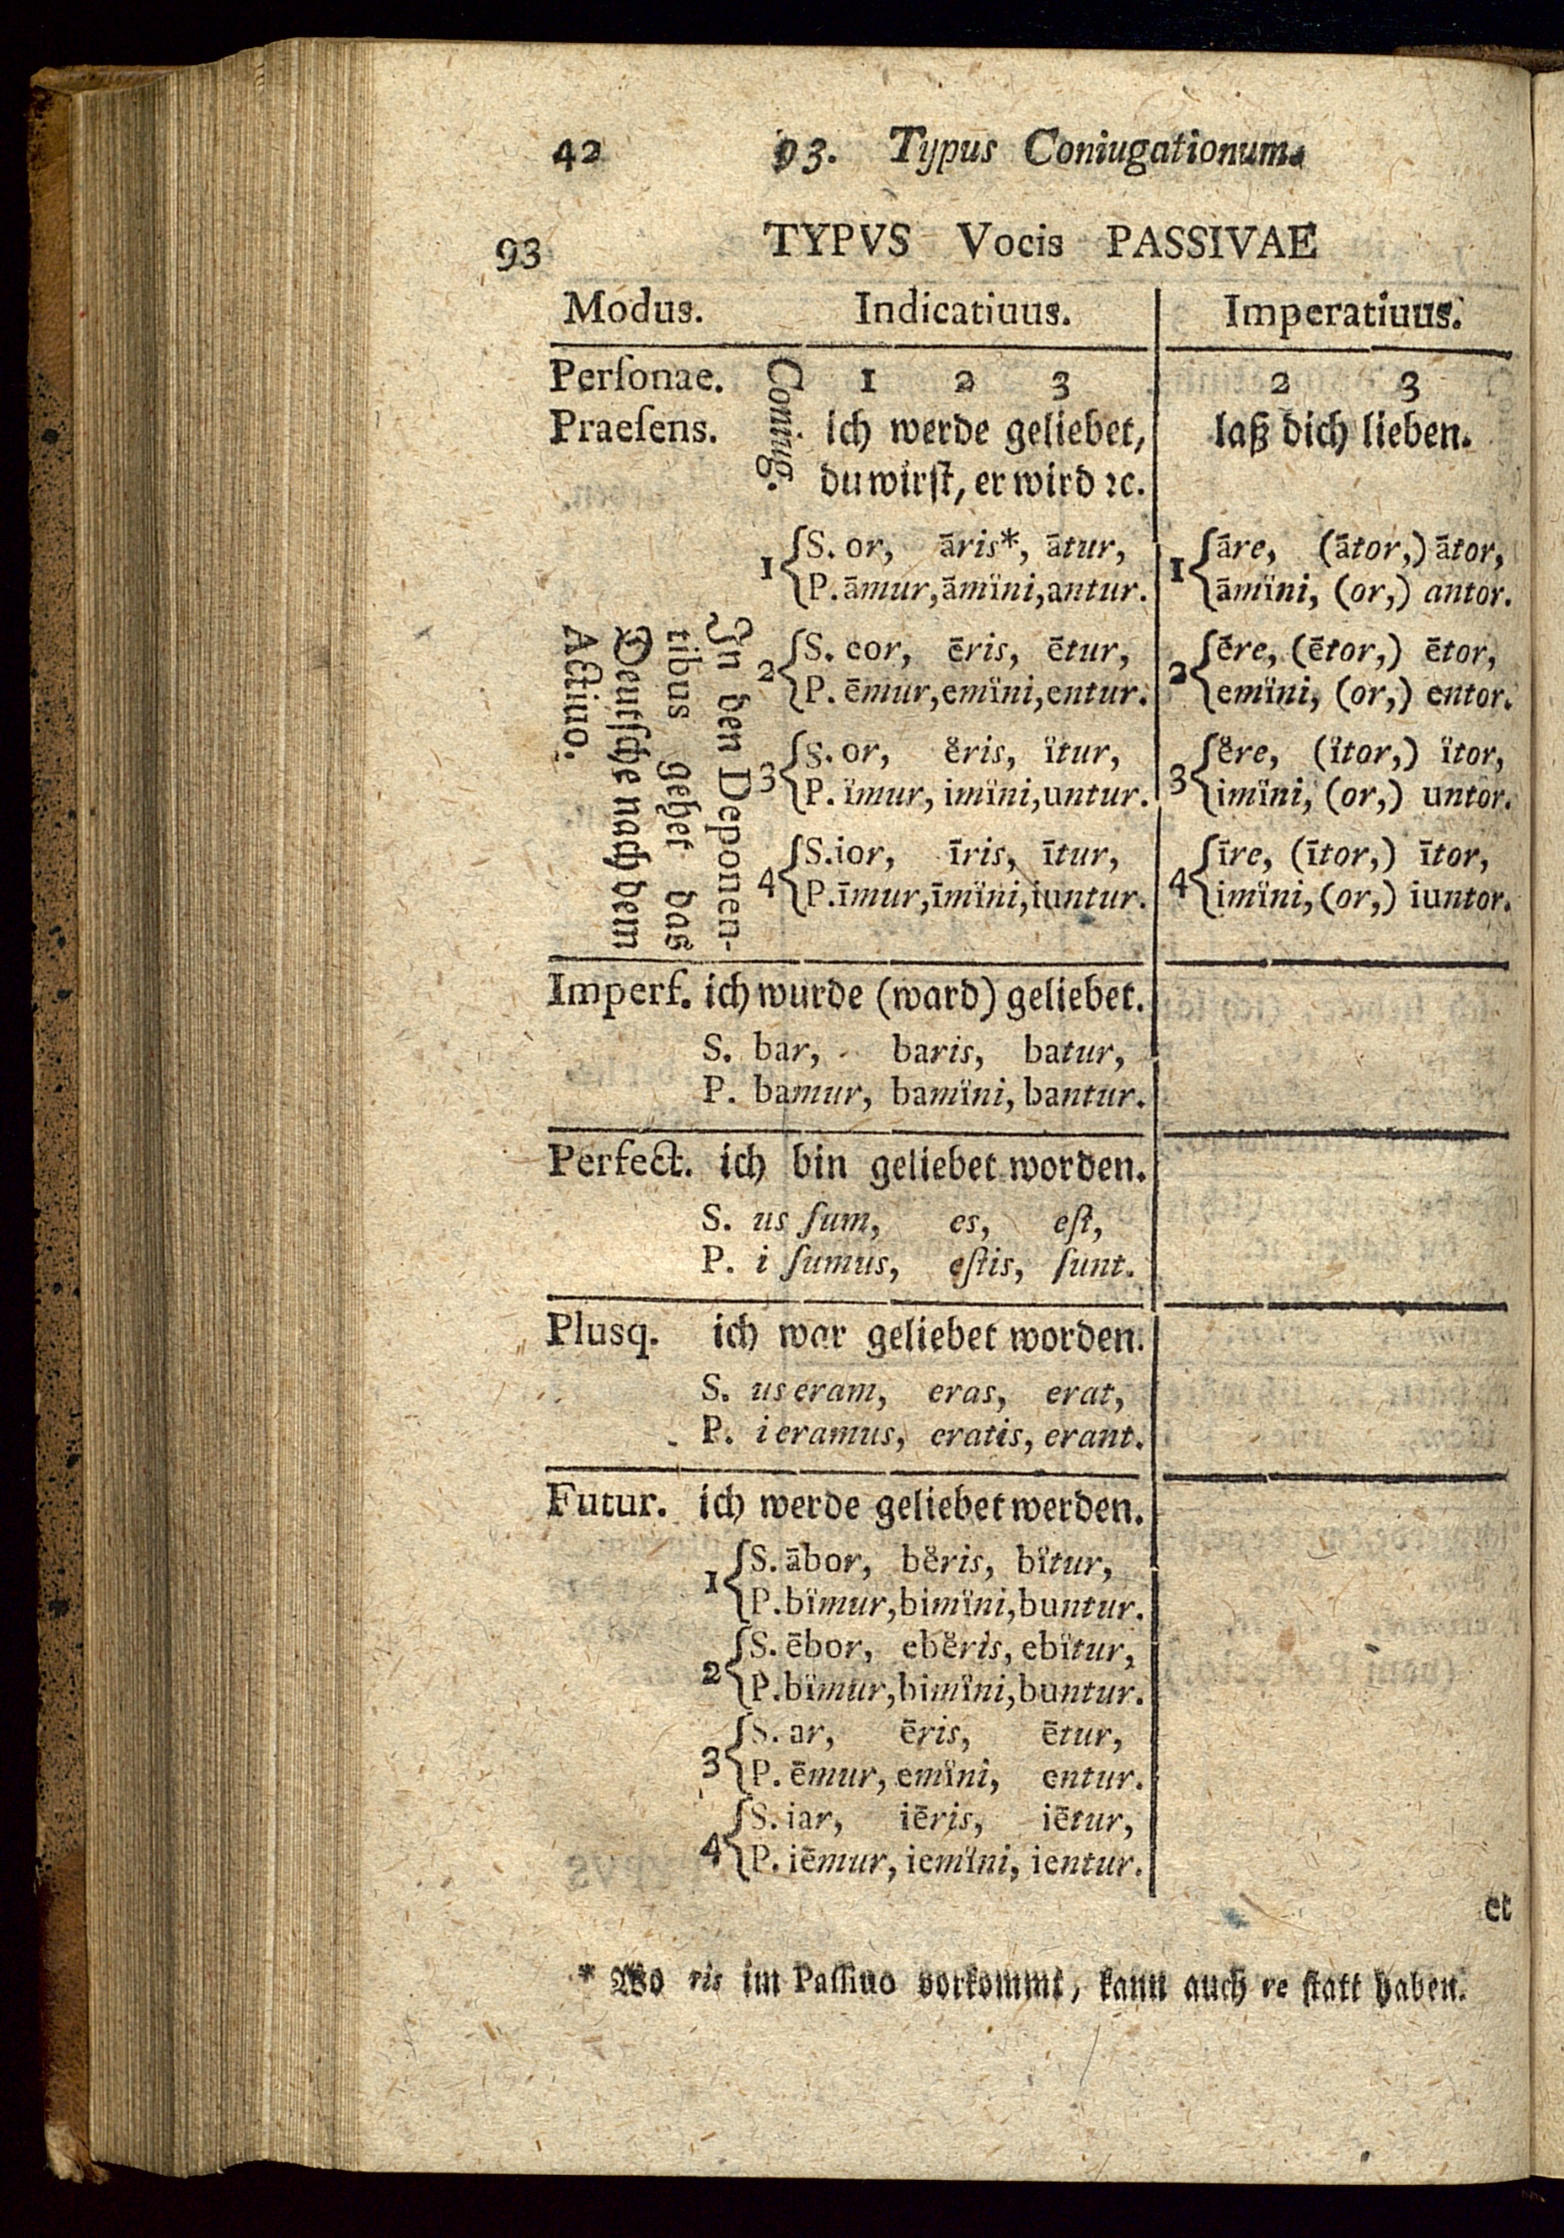 42 93. Typus Coniugationum.
93 TYPVS Vocis PASSIVAE
Modus. Indicatiuus. Imperatiuus.
Perſonae. Coniug. 1 2 3 2 3
Praeſens. ich werde geliebet, laß dich lieben.
du wirſt, er wird ꝛc.
1 S. or, āris*, ātur, 1 āre, (ātor,) ātor,
P. āmur, āmĭni, antur. āmĭni, (or,) antor.
In den Deponen-
tibus gehet das
Deutſche nach dem
Actiuo.
2 S. eor, ēris, ētur, 2 ēre, (ētor,) ētor,
P. ēmur, emĭni, entur. emĭni, (or,) entor.
3 S. or, ĕris, ĭtur, 3 ĕre, (ĭtor,) ĭtor,
P. ĭmur, imĭni, untur. imĭni, (or,) untor.
4 S. ior, īris, ītur, 4 īre, (ītor,) ītor,
P. īmur, īmĭni, iuntur. imĭni, (or,) iuntor.
Imperf. ich wurde (ward) geliebet.
S. bar, baris, batur,
P. bamur, bamĭni, bantur.
Perfect. ich bin geliebet worden.
S. us ſum, es, eſt,
P. i ſumus, eſtis, ſunt.
Plusq. ich war geliebet worden.
S. us eram, eras, erat,
P. i eramus, eratis, erant.
Futur. ich werde geliebet werden.
1 S. ābor, bĕris, bĭtur,
P. bĭmur, bimĭni, buntur.
2 S. ēbor, ebĕris, ebĭtur,
P. bĭmur, bimĭni, buntur.
3 S. ar, ēris, ētur,
P. ēmur, emĭni, entur.
4 S. iar, iēris, iētur,
P. iēmur, iemĭni, ientur.
et
* Wo ris im Paſſiuo vorkommt, kann auch re ſtatt haben.